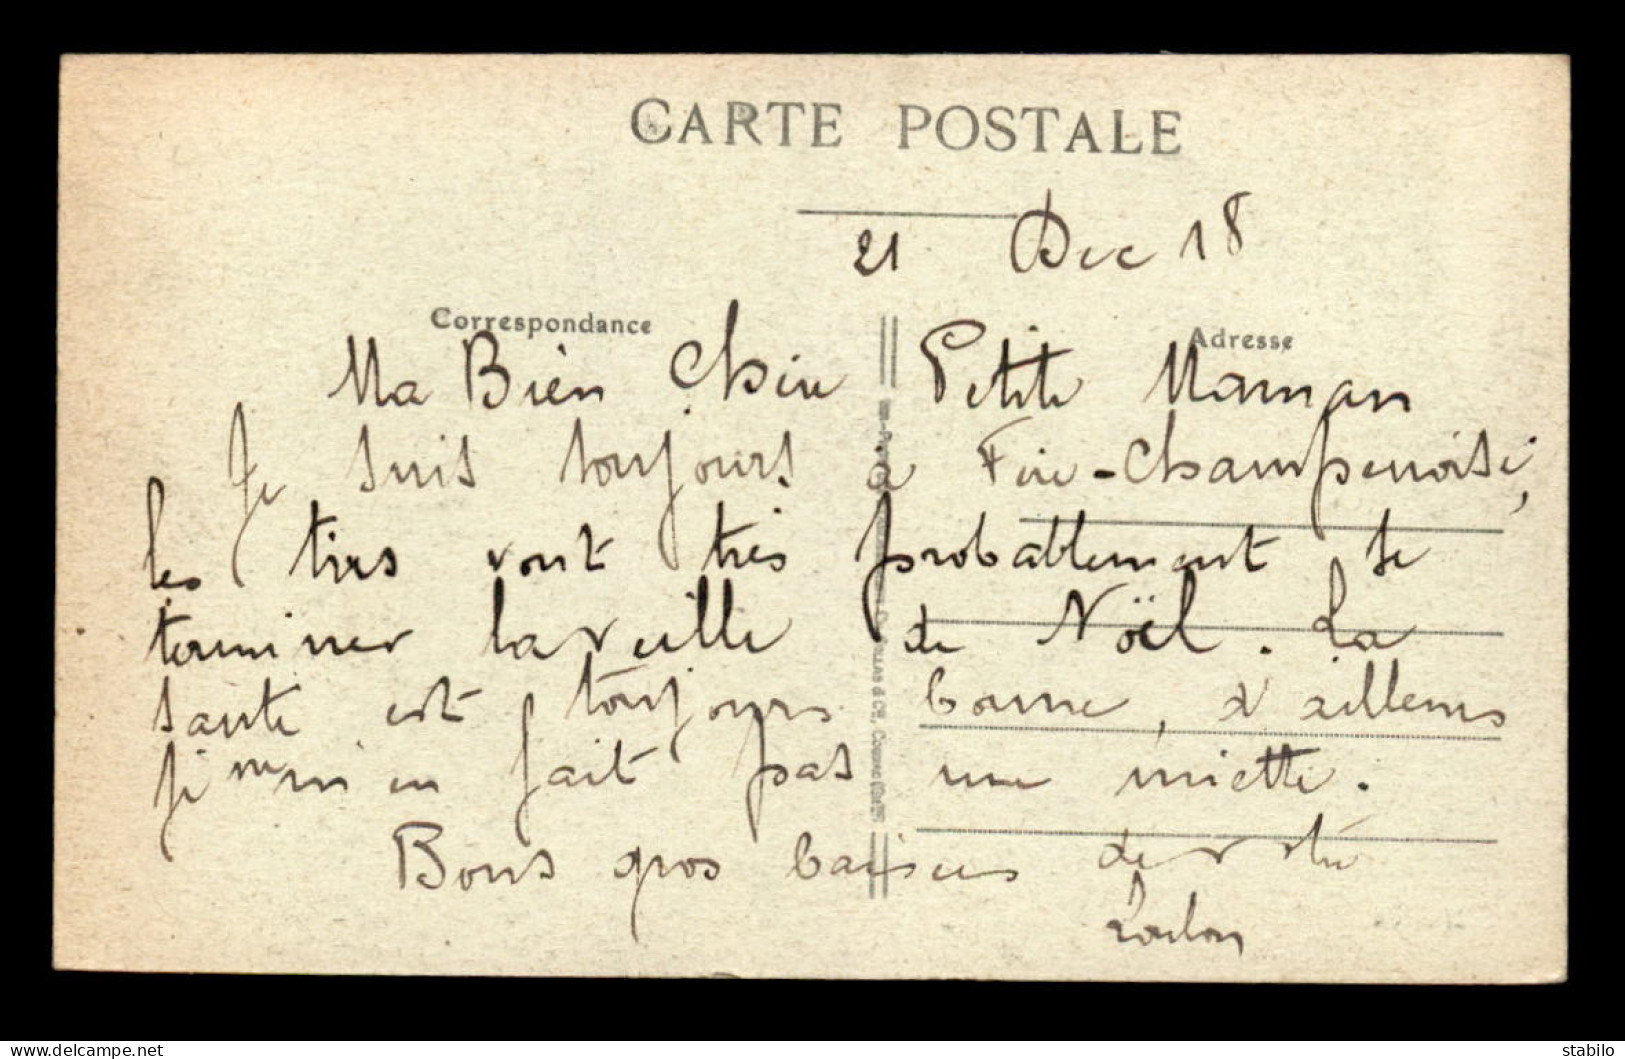 CARTE POSTALE
21 Dec 18
Correspondance
Adresse
Ma Bien Chère Petite Maman
Je suis toujours à Fère-Champenoise,
les tirs vont très probablement se
terminer la veille de Noël. La
santé est toujours bonne, d'ailleurs
je m'en fait pas une miette.
Bons gros baisers de votre
Loulou
www.delcampe.net
stabilo